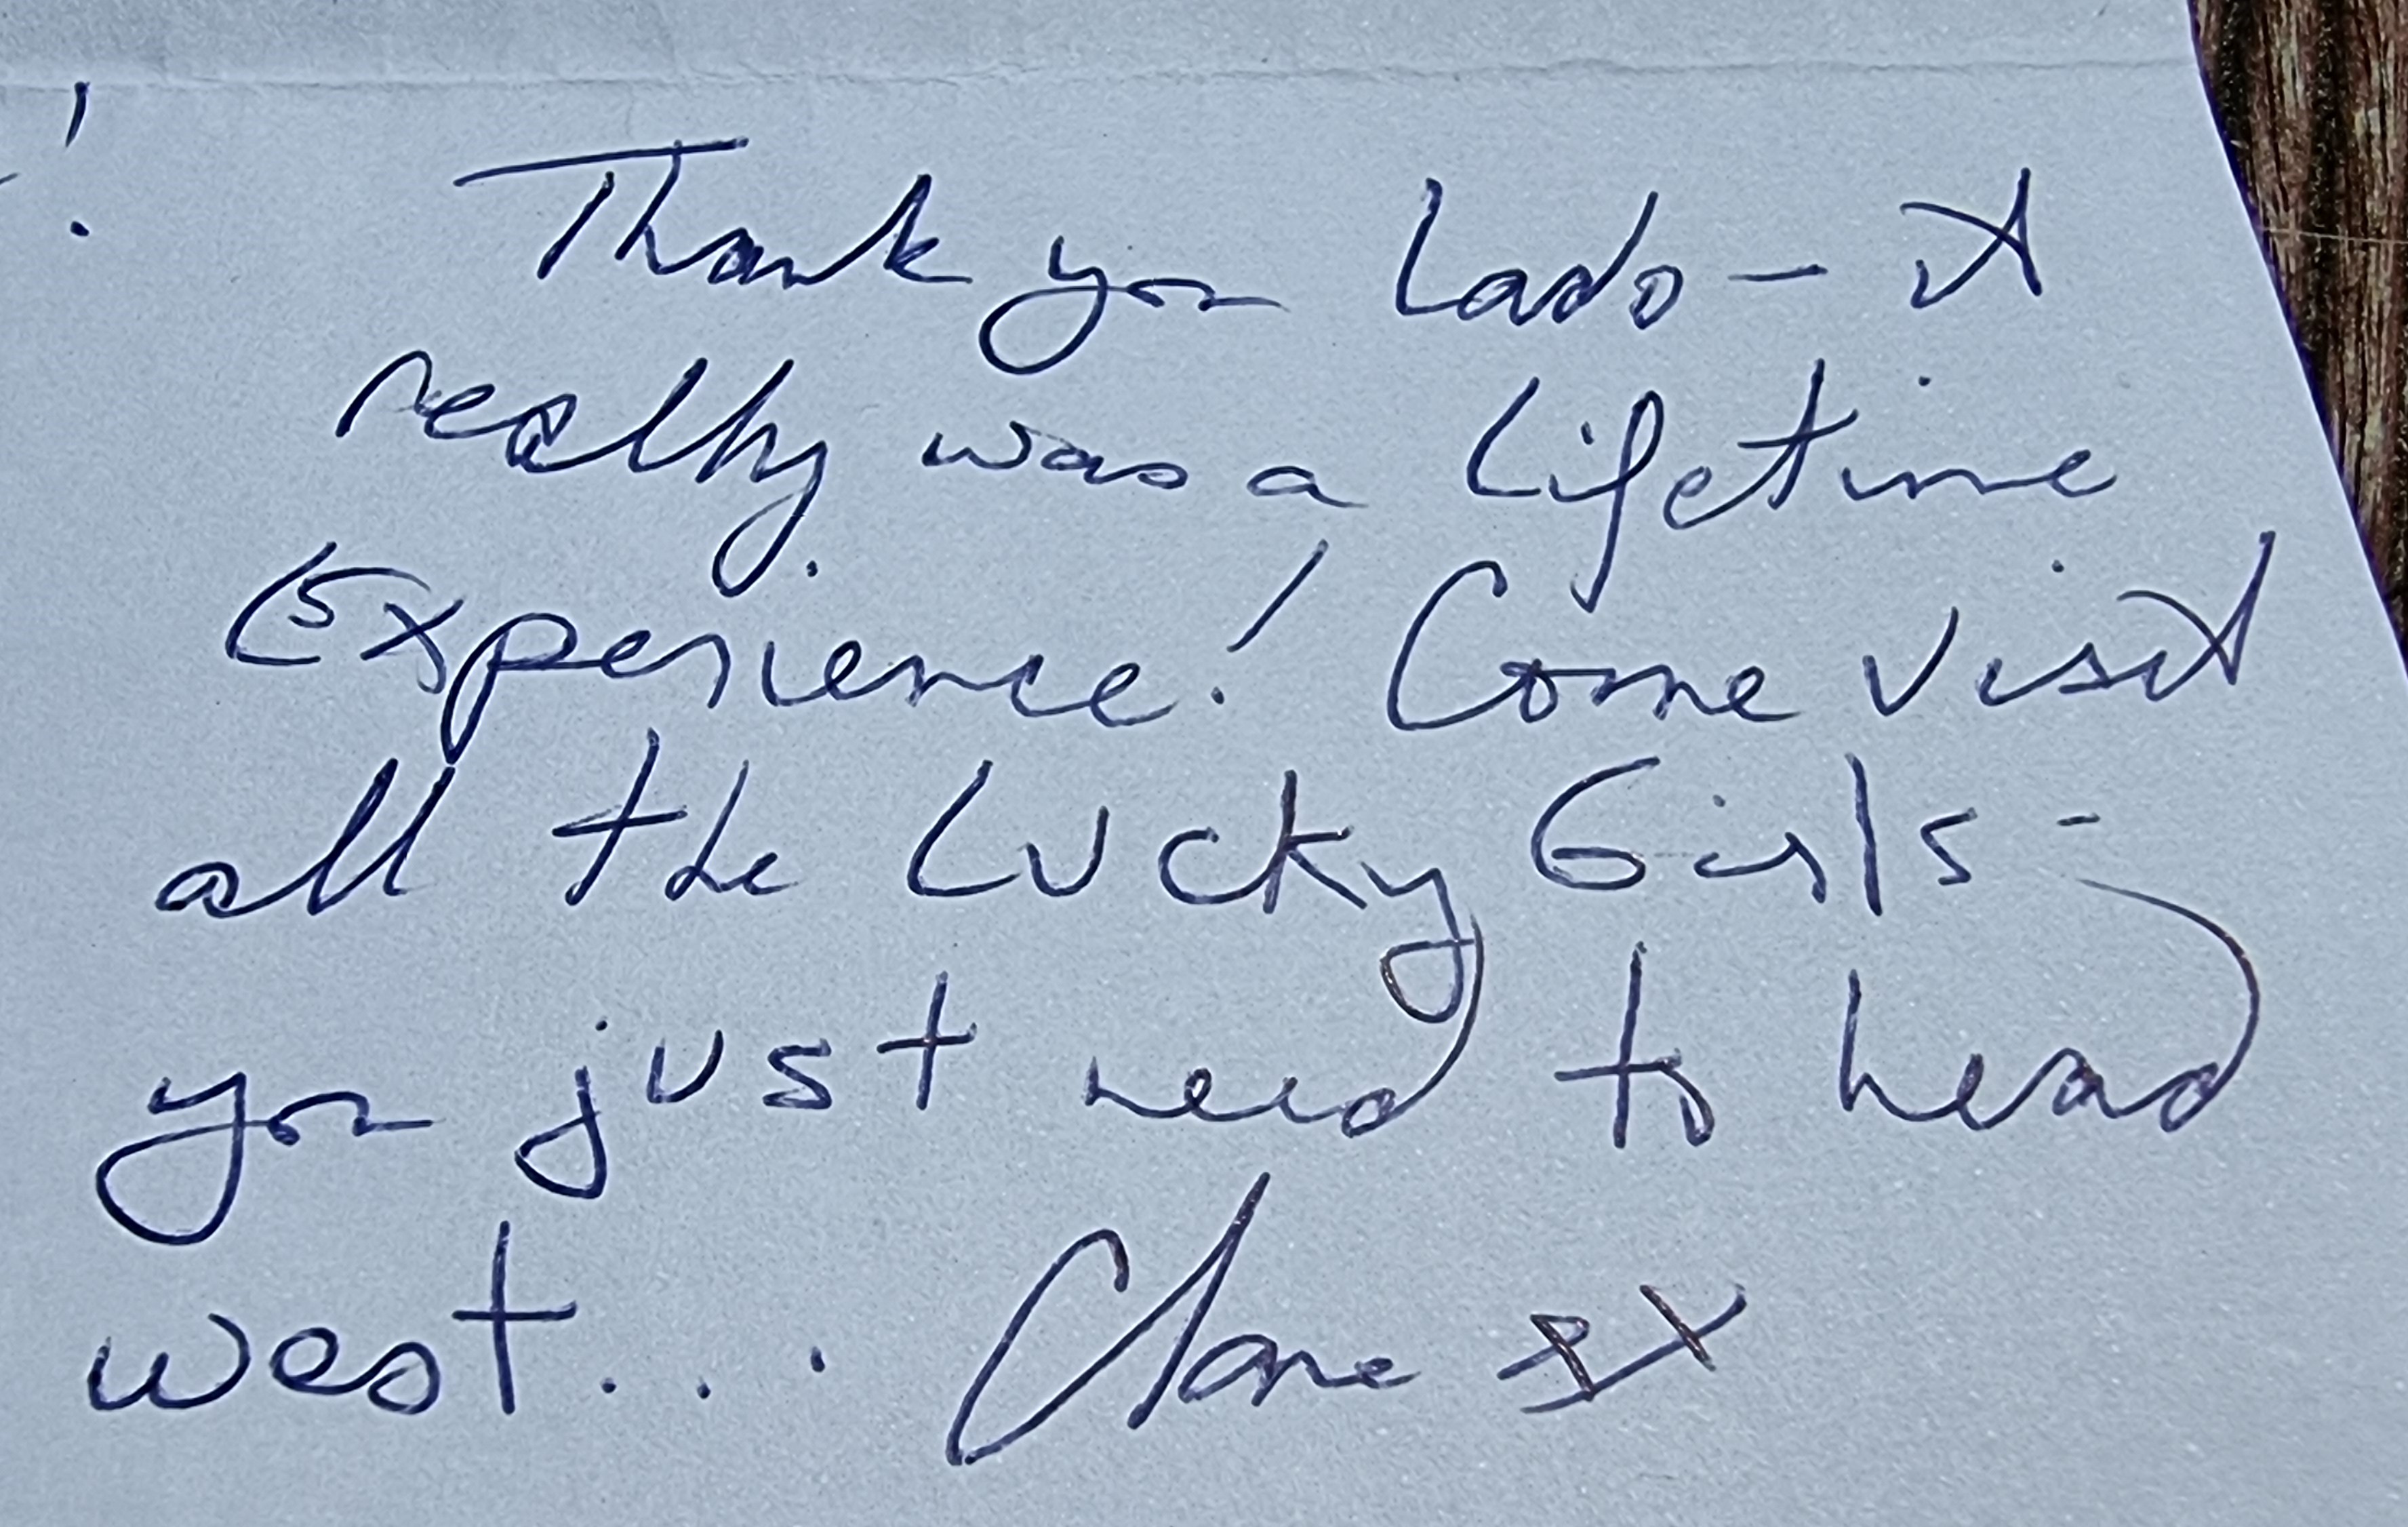 !
Thank you Lado – it
really was a Lifetime
Experience! Come visit
all the Lucky Girls –
you just need to head
west... Clare xx